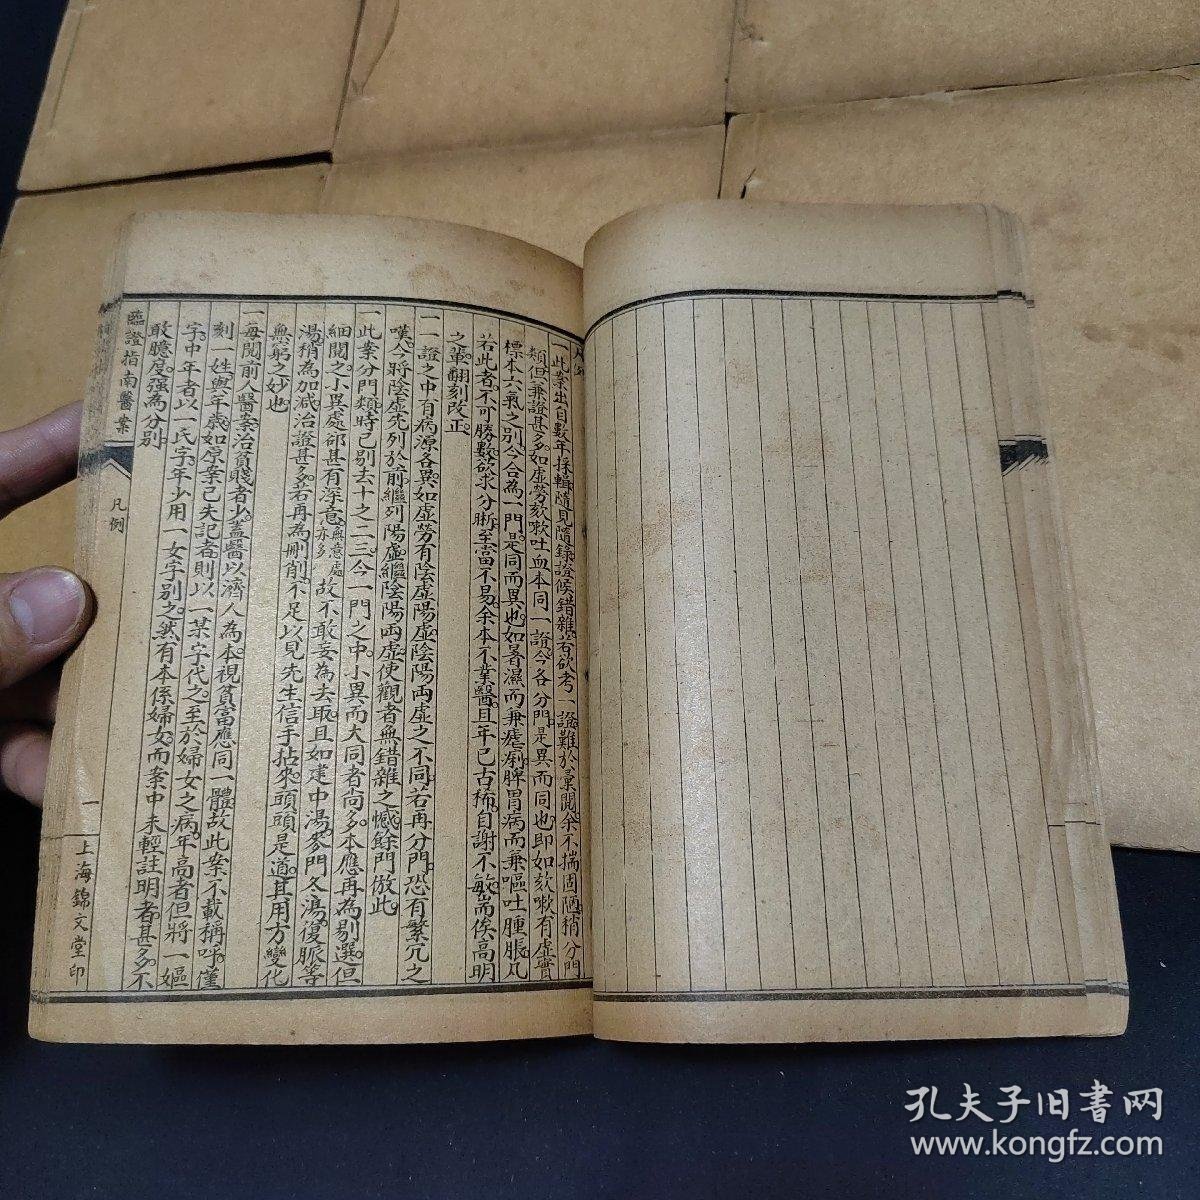 凡例
一此案出自數年採輯隨見隨錄證候錯雜若欲考一證難於彙閱余不揣固陋稍分門
類但兼證甚多如虛勞欬嗽吐血本同一證今各分門是異而同也即如欬嗽有虛實
標本六氣之別今合為一門是同而異也如暑濕而兼瘧痢脾胃病而兼嘔吐腫脹凡
若此者不可勝數欲求分晰至當不易余本不業醫且年已古稀自謝不敏耑俟高明
之輩翻刻改正
一一證之中有病源各異如虛勞有陰虛陽虛陰陽兩虛之不同若再分門恐有繁冗之
嘆今將陰虛先列於前繼列陽虛繼陰陽兩虛使觀者無錯雜之憾餘門倣此
一此案分門類時已剔去十之二三今一門之中小異而大同者尚多本應再為剔選但
細閱之小異處卻甚有深意無意處亦多故不敢妄為去取且如建中湯麥門冬湯復脈等
湯稍為加減治證甚多若再為刪削不足以見先生信手拈來頭頭是道其用方變化
無窮之妙也
一每閱前人醫案治貧賤者少蓋醫以濟人為本視貧富應同一體故此案不載稱呼僅
刻 姓與年歲如原案已失記者則以一某字代之至於婦女之病年高者但將一嫗
字中年者以一氏字年少用一女字別之然有本係婦女而案中未輕註明者甚多不
敢臆度強為分別
臨證指南醫案
凡例
一
上海錦文堂印
孔夫子旧書网
www.kongfz.com